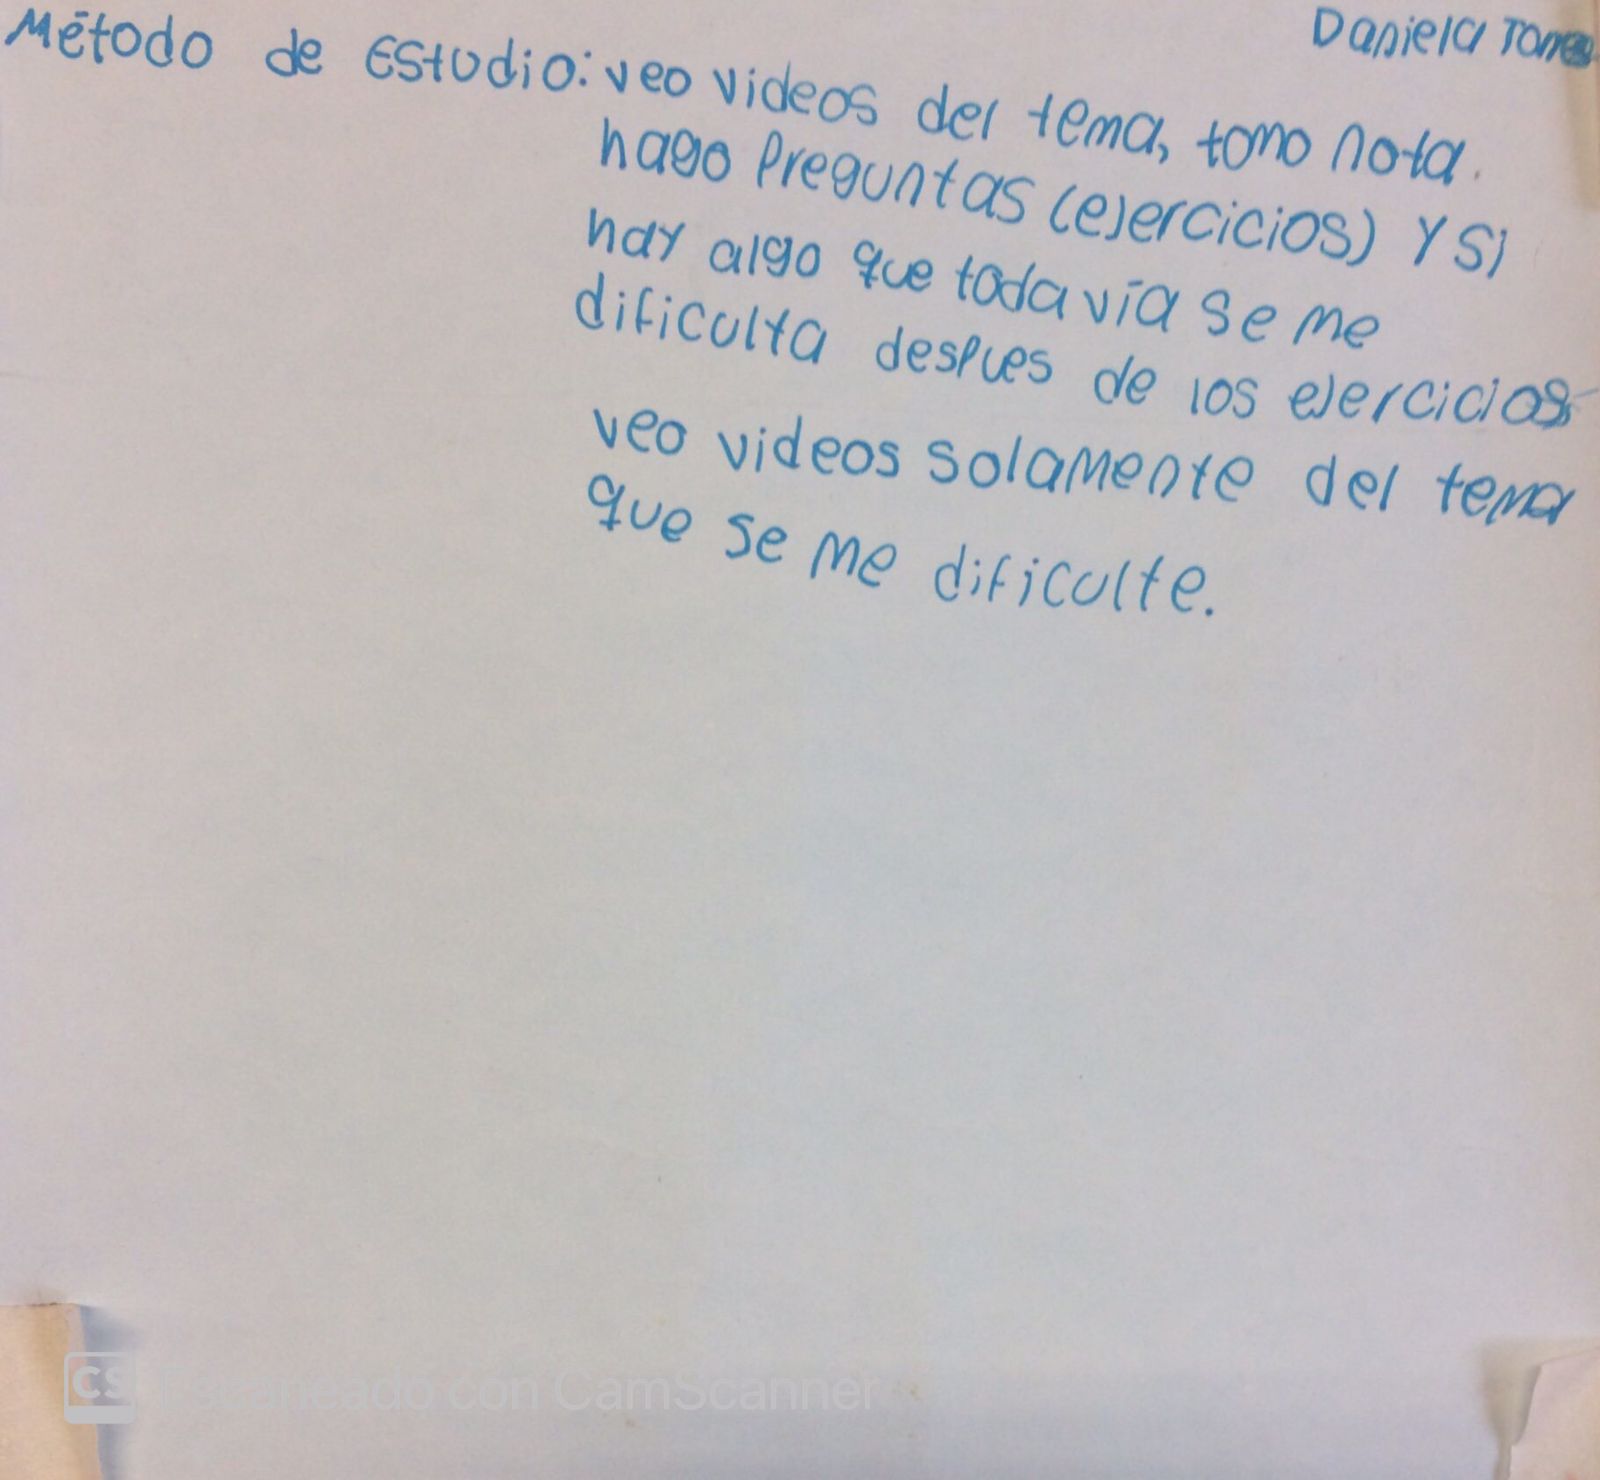 Daniela
Método de Estudio: veo videos del tema, tomo nota.
hago Preguntas (ejercicios) Y si
hay algo que todavía se me
dificulta despues de los ejercicios
veo videos solamente del tema
que se me dificulte.
CS Escaneado con CamScanner